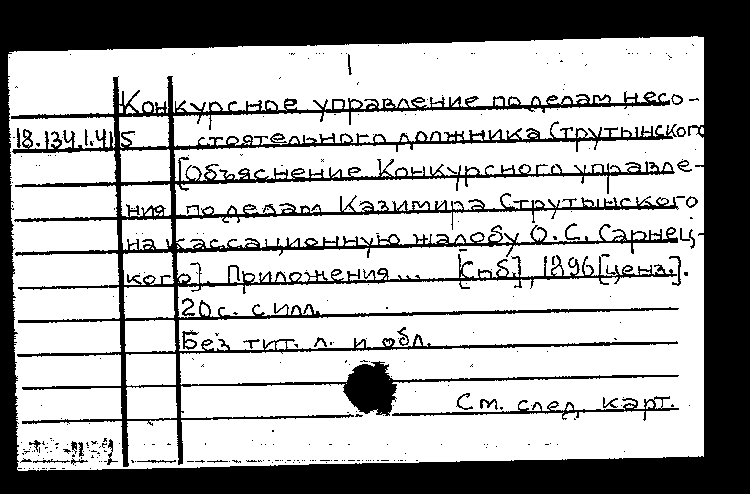 Конкурсное управление по делам несо-
18.134.1.415 стоятельного должника Струтынского
[Объяснение Конкурсного управле-
ния по делам Казимира Струтынского
на кассационную жалобу О.С. Сарнец-
кого]. Приложения... [Спб.], 1896 [ценз.].
20 с. с илл.
Без тит. л. и обл.
См. след. карт.